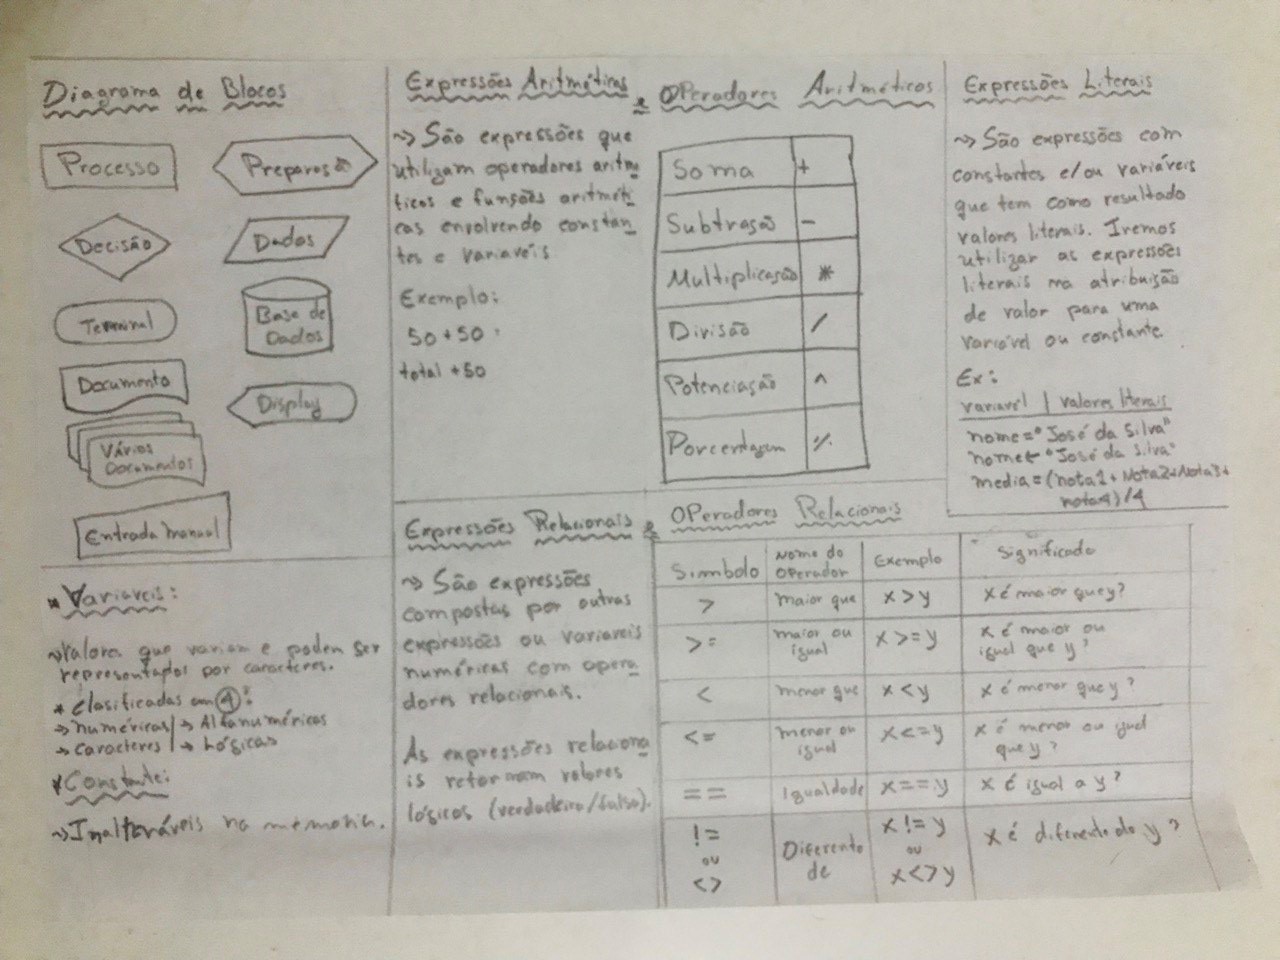 Diagrama de Blocos
Processo
Preparos
Decisão
Dados
Terminal
Base de
Dados
Documento
Display
Vários
Documentos
Entrada manual
* Variaveis:
~> Valores que variam e podem ser
representados por caracteres.
* Clasificadas em 4:
-> numéricas / -> Alfanuméricas
-> caracteres / -> Lógicas
* Constante:
~> Inalteráveis na memoria.
Expressões Aritméticas e Operadores Aritméticos
~> São expressões que
utilizam operadores aritmé
ticos e funsões aritméti
cas envolvendo constan
tes e variaveís
Exemplo:
50 + 50
total + 50
Soma +
Subtração -
Multiplicação *
Divisão /
Potenciação ^
Porcentagem %
Expressões Literais
~> São expressões com
constantes e/ou variáveis
que tem como resultado
valores literais. Iremos
utilizar as expressões
literais na atribuição
de valor para uma
variável ou constante
Ex:
variavél | valores literais
nome = "José da Silva"
nome ← "José da Silva"
media = (nota1 + Nota2 + Nota3 +
nota4) / 4
Expressões Relacionais e Operadores Relacionais
~> São expressões
compostas por outras
expressões ou variaveis
numéricas com opera
dores relacionais.
As expressões relaciona
is retornam valores
lógicos (verdadeiro/falso).
Simbolo | Nome do Operador | Exemplo | Significado
> | maior que | x > y | x é maior que y?
>= | maior ou igual | x >= y | x é maior ou igual que y?
< | menor que | x < y | x é menor que y?
<= | menor ou igual | x <= y | x é menor ou igual que y?
== | Igualdade | x == y | x é igual a y?
!= ou <> | Diferente de | x != y ou x <> y | x é diferente do y?